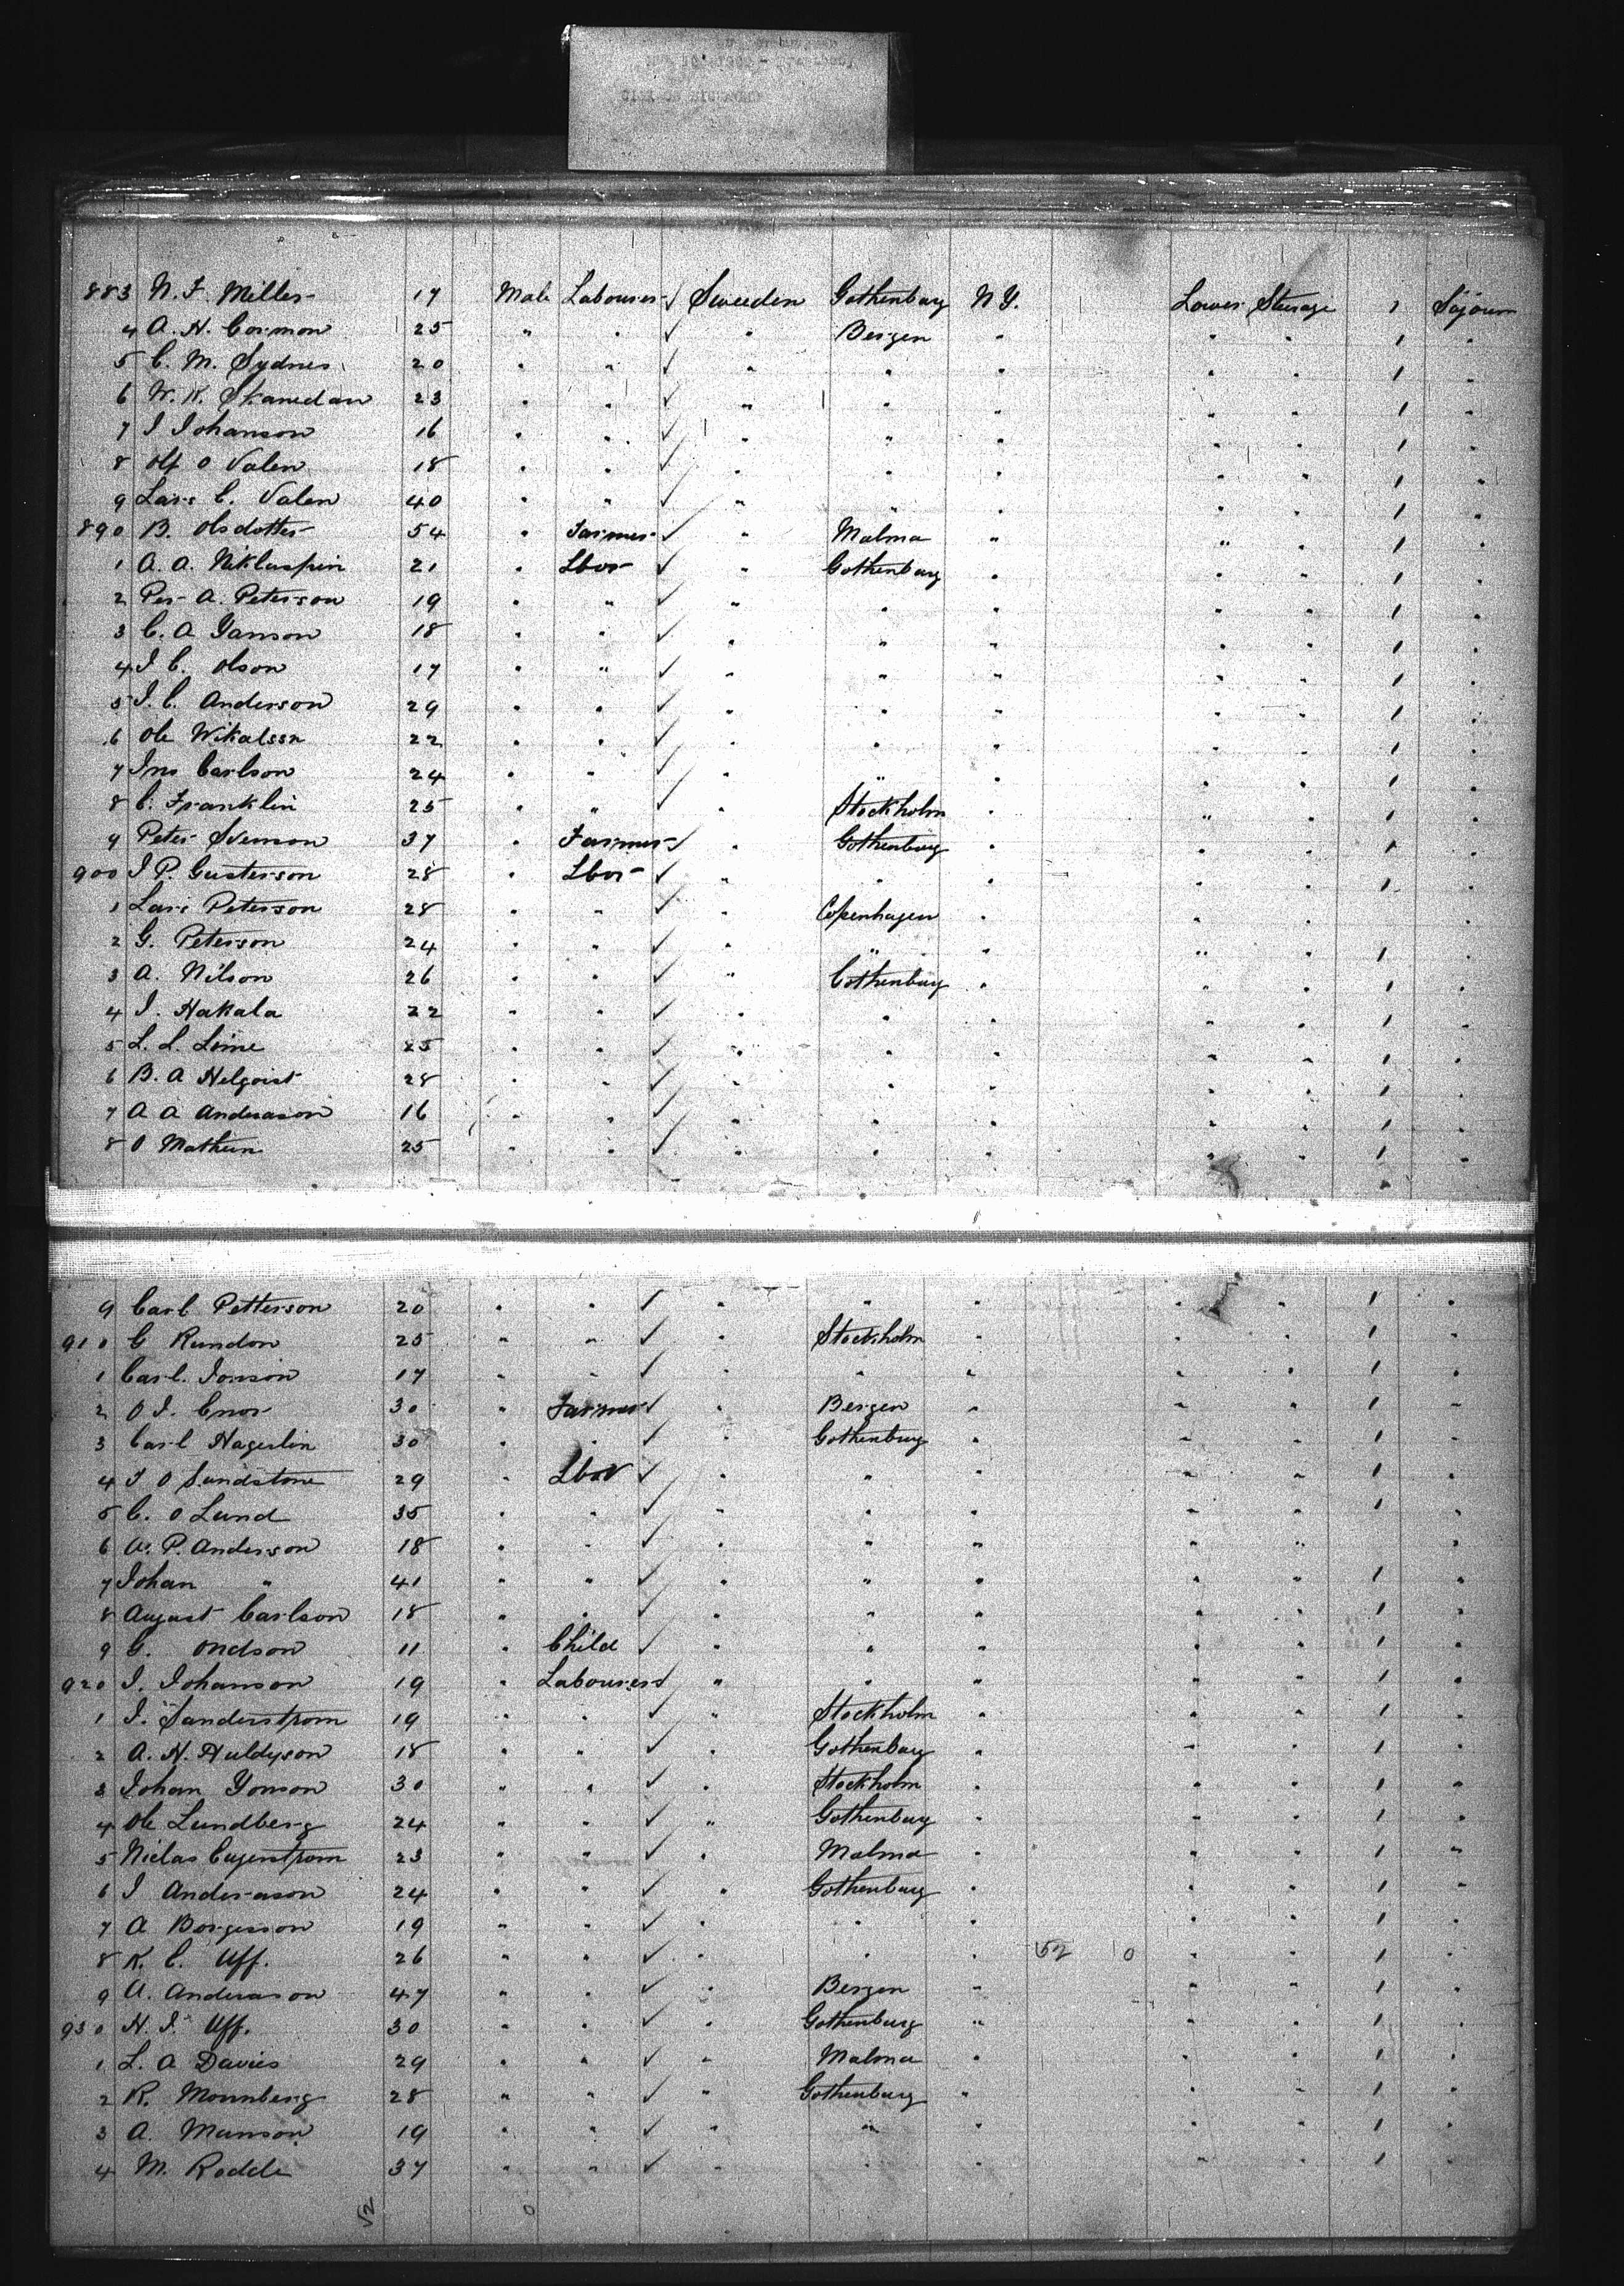 883 N. F. Miller 17 Male Labourer ✓ Sweeden Gothenburg N Y. Lower Sterage 1 Sojourn
4 A. H. Cormon 25 " " ✓ " Bergen " " " 1 "
5 C. M. Sydnes 20 " " ✓ " " " " " 1 "
6 W. K. 23 " " ✓ " " " " " 1 "
7 I Johanson 16 " " ✓ " " " " " 1 "
8 Olf O Valen 18 " " ✓ " " " " " 1 "
9 Lars C. Valen 40 " " ✓ " " " " " 1 "
890 B. Olsdotter 54 " Farmer ✓ " Malma " " " 1 "
1 A. A. 21 " Lbor ✓ " Gothenburg " " " 1 "
2 Per A. Peterson 19 " " ✓ " " " " " 1 "
3 C. A Janson 18 " " ✓ " " " " " 1 "
4 I C. Olson 17 " " ✓ " " " " " 1 "
5 I. C. Anderson 29 " " ✓ " " " " " 1 "
6 Ole Wikalssn 22 " " ✓ " " " " " 1 "
7 Jno Carlson 24 " " ✓ " " " " " 1 "
8 C. Franklin 25 " " ✓ " Stockholm " " " 1 "
9 Peter Svenson 37 " Farmer ✓ " Gothenburg " " " 1 "
900 I P. Gusterson 28 " Lbor ✓ " " " " " 1 "
1 Lars Peterson 28 " " ✓ " Copenhagen " " " "
2 G. Peterson 24 " " ✓ " " " " " 1 "
3 A. Nilson 26 " " ✓ " Gothenburg " " " 1 "
4 I. Hakala 22 " " ✓ " " " " " 1 "
5 L. L. Line 25 " " ✓ " " " " " 1 "
6 B. A Helgoist 28 " " ✓ " " " " " 1 "
7 A A Anderason 16 " " ✓ " " " " " 1 "
8 O Mathein 25 " " ✓ " " " " " 1 "
9 Carl Petterson 20 " " ✓ " " " " " 1 "
910 G Rundon 25 " " ✓ " Stockholm " " " 1 "
1 Carl. Jonson 17 " " ✓ " " " " " 1 "
2 O I. Enor 30 " Farmer ✓ " Bergen " " " 1 "
3 Carl Hagerlin 30 " " ✓ " Gothenburg " " " 1 "
4 I O Sundstone 29 " Lbor ✓ " " " " " 1 "
5 C. O Lund 35 " " ✓ " " " " " 1 "
6 A. P. Anderson 18 " " ✓ " " " " " "
7 Johan " 41 " " ✓ " " " " " 1 "
8 August Carlson 18 " " ✓ " " " " " 1 "
9 G. Ondson 11 " Child ✓ " " " " " 1 "
920 I. Johanson 19 " Labourer ✓ " " " " " 1 "
1 I. Sanderstrom 19 " " ✓ " Stockholm " " " 1 "
2 A. H. Huldyson 18 " " ✓ " Gothenburg " " " 1 "
3 Johan Yonson 30 " " ✓ " Stockholm " " " 1 "
4 Ole Lundberg 24 " " ✓ " Gothenburg " " " 1 "
5 Niclas 23 " " ✓ " Malma " " " 1 "
6 I Anderason 24 " " ✓ " Gothenburg " " " 1 "
7 A Borgesson 19 " " ✓ " " " " " 1 "
8 K. C. Uff. 26 " " ✓ " " " 52 0 " " 1 "
9 A. Anderason 47 " " ✓ " Bergen " " " 1 "
930 H. I. Uff. 30 " " ✓ " Gothenburg " " " 1 "
1 L. A Davies 29 " " ✓ " Malma " " " 1 "
2 R. Mounberg 28 " " ✓ " Gothenburg " " " 1 "
3 A. Manson 19 " " ✓ " " " " " 1 "
4 M. Rodde 37 " " ✓ " " " " " 1 "
52 0